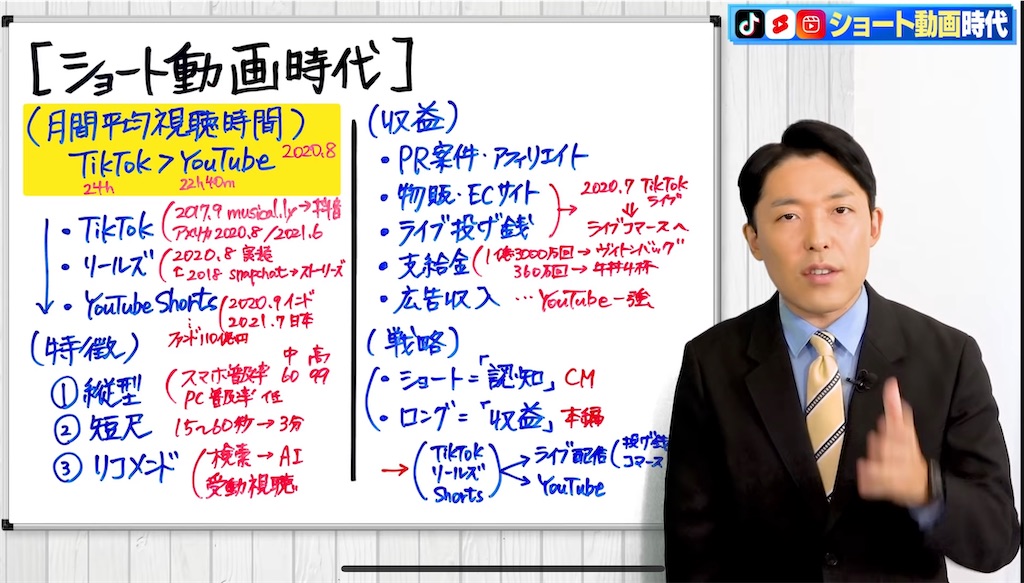 ショート動画時代
[ショート動画時代]
(月間平均視聴時間)
TikTok>YouTube 2020.8
24h 22h40m
・TikTok (2017.9 musical.ly→抖音
アメリカ2020.8/2021.6
・リールズ (2020.8 実装
2018 snapchat→ストーリーズ
・YouTube Shorts (2020.9インド
2021.7日本
ファンド110億円
(特徴)
中 高
①縦型 (スマホ普及率 60 99
PC普及率 低
②短尺 15~60秒→3分
③リコメンド (検索→AI
受動視聴
(収益)
・PR案件・アフィリエイト
・物販・ECサイト
・ライブ投げ銭
→ 2020.7 TikTok
ライブ
⇓
ライブコマースへ
・支給金 (1億3000万回→ヴィトンバッグ
360万回→
・広告収入 …YouTube一強
(戦略)
・ショート=「認知」CM
・ロング=「収益」本編
→(TikTok
リールズ
Shorts)
ライブ配信 (投げ銭
コマース
YouTube